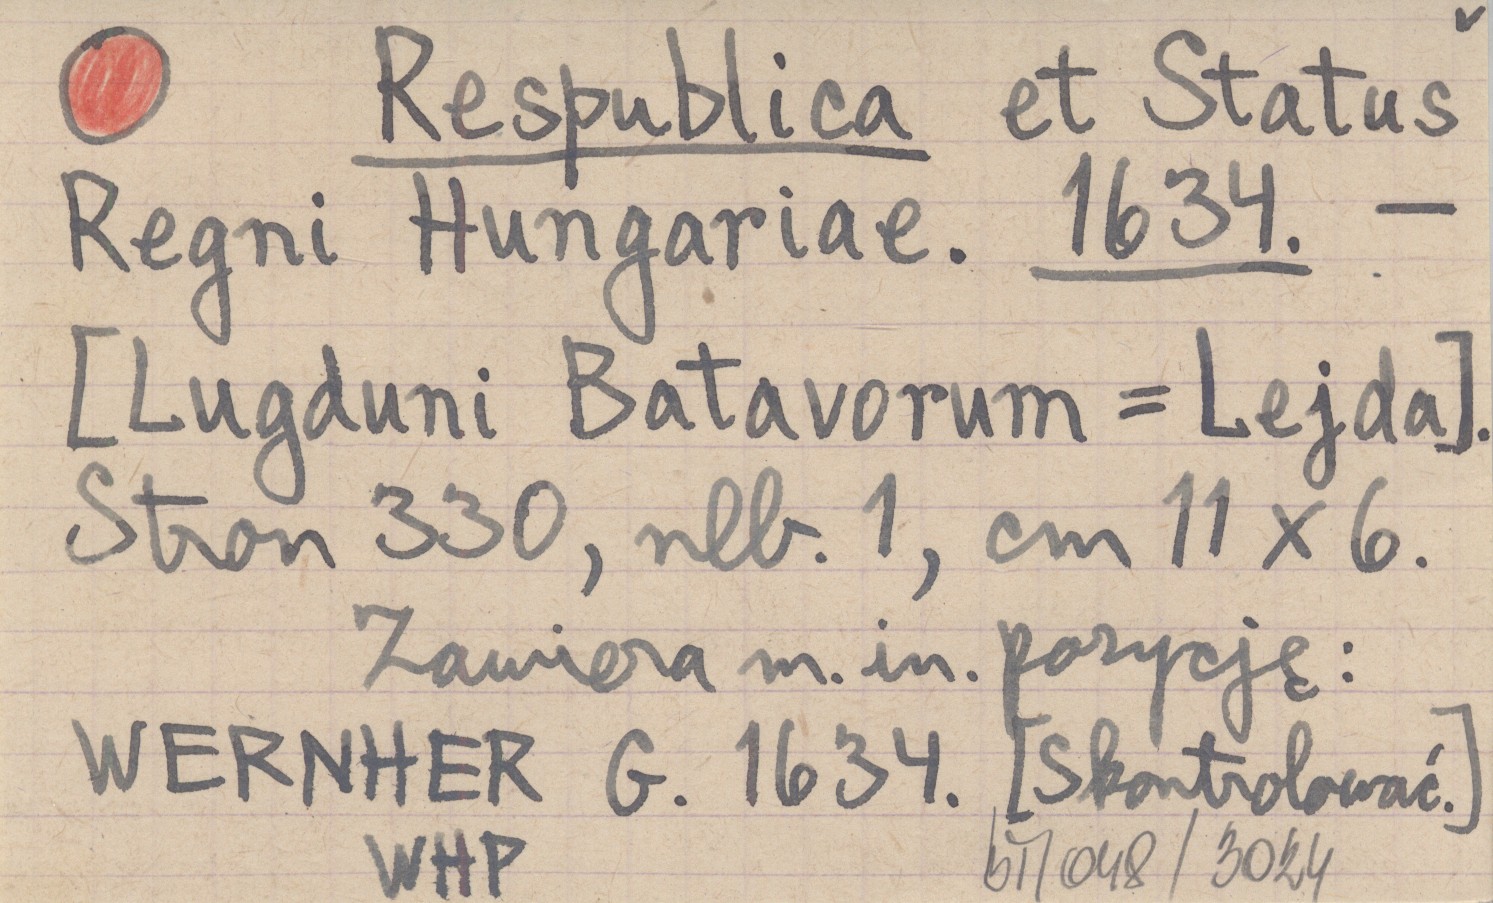 Respublica et Status
Regni Hungariae. 1634. —
[Lugduni Batavorum = Lejda].
Stron 330, nlb. 1, cm 11 x 6.
Zawiera m. in. pozycję:
WERNHER G. 1634. [Skontrolować.]
WHP bT/048/3024